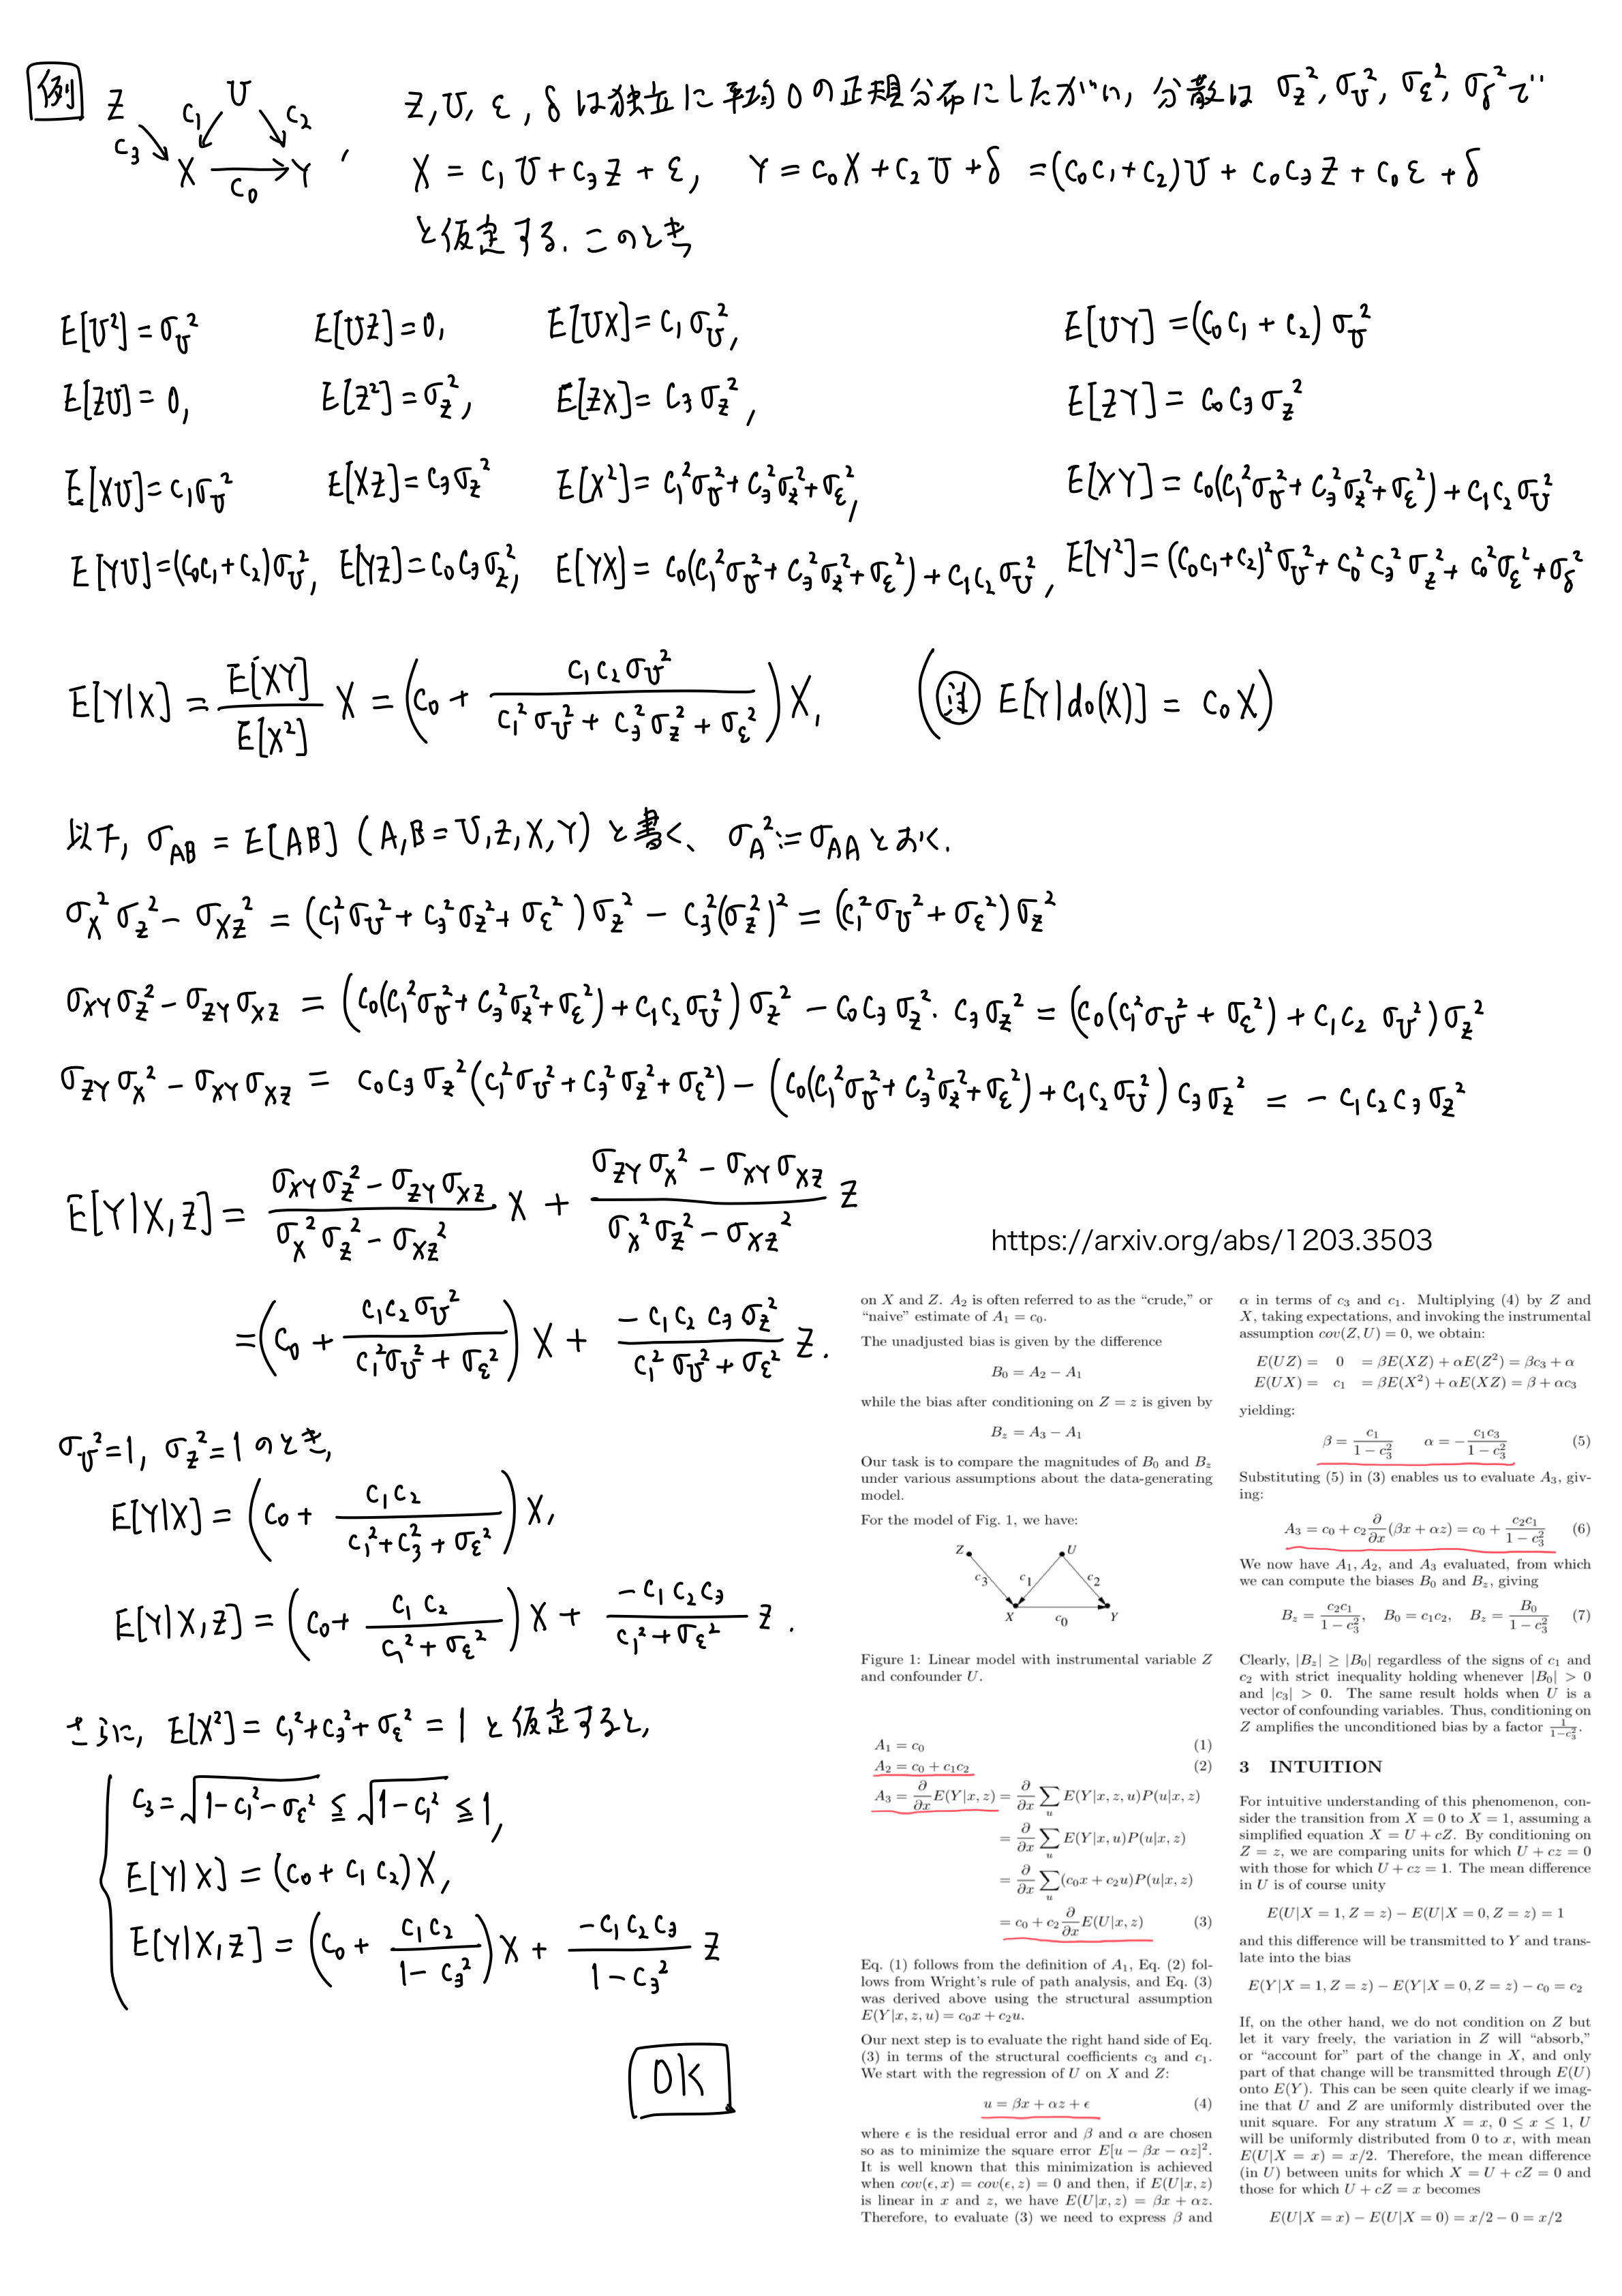 例 Z U X Y c₁ c₂ c₃ c₀ , Z, U, ε, δ は独立に平均0の正規分布にしたがい, 分散は σ_Z², σ_U², σ_ε², σ_δ² で
X = c₁U + c₃Z + ε, Y = c₀X + c₂U + δ = (c₀c₁+c₂)U + c₀c₃Z + c₀ε + δ
と仮定する. このとき,
E[U²] = σ_U² E[UZ] = 0, E[UX] = c₁σ_U², E[UY] = (c₀c₁ + c₂) σ_U²
E[ZU] = 0, E[Z²] = σ_Z², E[ZX] = c₃σ_Z², E[ZY] = c₀c₃σ_Z²
E[XU] = c₁σ_U² E[XZ] = c₃σ_Z² E[X²] = c₁²σ_U² + c₃²σ_Z² + σ_ε², E[XY] = c₀(c₁²σ_U² + c₃²σ_Z² + σ_ε²) + c₁c₂σ_U²
E[YU] = (c₀c₁+c₂)σ_U², E[YZ] = c₀c₃σ_Z², E[YX] = c₀(c₁²σ_U² + c₃²σ_Z² + σ_ε²) + c₁c₂σ_U², E[Y²] = (c₀c₁+c₂)²σ_U² + c₀²c₃²σ_Z² + c₀²σ_ε² + σ_δ²
E[Y|X] = E[XY]/E[X²] X = (c₀ + c₁c₂σ_U²/(c₁²σ_U² + c₃²σ_Z² + σ_ε²)) X, (注 E[Y|do(X)] = c₀X)
以下, σ_AB = E[AB] (A,B = U,Z,X,Y) と書く、 σ_A² := σ_AA とおく.
σ_X²σ_Z² − σ_XZ² = (c₁²σ_U² + c₃²σ_Z² + σ_ε²)σ_Z² − c₃²(σ_Z²)² = (c₁²σ_U² + σ_ε²)σ_Z²
σ_XYσ_Z² − σ_ZYσ_XZ = (c₀(c₁²σ_U² + c₃²σ_Z² + σ_ε²) + c₁c₂σ_U²)σ_Z² − c₀c₃σ_Z²·c₃σ_Z² = (c₀(c₁²σ_U² + σ_ε²) + c₁c₂σ_U²)σ_Z²
σ_ZYσ_X² − σ_XYσ_XZ = c₀c₃σ_Z²(c₁²σ_U² + c₃²σ_Z² + σ_ε²) − (c₀(c₁²σ_U² + c₃²σ_Z² + σ_ε²) + c₁c₂σ_U²)c₃σ_Z² = −c₁c₂c₃σ_Z²
E[Y|X,Z] = (σ_XYσ_Z² − σ_ZYσ_XZ)/(σ_X²σ_Z² − σ_XZ²) X + (σ_ZYσ_X² − σ_XYσ_XZ)/(σ_X²σ_Z² − σ_XZ²) Z
= (c₀ + c₁c₂σ_U²/(c₁²σ_U² + σ_ε²)) X + −c₁c₂c₃σ_Z²/(c₁²σ_U² + σ_ε²) Z.
σ_U²=1, σ_Z²=1 のとき,
E[Y|X] = (c₀ + c₁c₂/(c₁²+c₃²+σ_ε²)) X,
E[Y|X,Z] = (c₀ + c₁c₂/(c₁²+σ_ε²)) X + −c₁c₂c₃/(c₁²+σ_ε²) Z.
さらに, E[X²] = c₁²+c₃²+σ_ε² = 1 と仮定すると,
c₃ = √(1−c₁²−σ_ε²) ≦ √(1−c₁²) ≦ 1,
E[Y|X] = (c₀ + c₁c₂)X,
E[Y|X,Z] = (c₀ + c₁c₂/(1−c₃²)) X + −c₁c₂c₃/(1−c₃²) Z
OK
https://arxiv.org/abs/1203.3503
on X and Z. A₂ is often referred to as the “crude,” or
“naive” estimate of A₁ = c₀.
The unadjusted bias is given by the difference
B₀ = A₂ − A₁
while the bias after conditioning on Z = z is given by
B_z = A₃ − A₁
Our task is to compare the magnitudes of B₀ and B_z
under various assumptions about the data-generating
model.
For the model of Fig. 1, we have:
Z U
c₃ c₁ c₂
X c₀ Y
Figure 1: Linear model with instrumental variable Z
and confounder U.
A₁ = c₀ (1)
A₂ = c₀ + c₁c₂ (2)
A₃ = ∂/∂x E(Y|x, z) = ∂/∂x ∑_u E(Y|x, z, u)P(u|x, z)
= ∂/∂x ∑_u E(Y|x, u)P(u|x, z)
= ∂/∂x ∑_u (c₀x + c₂u)P(u|x, z)
= c₀ + c₂ ∂/∂x E(U|x, z) (3)
Eq. (1) follows from the definition of A₁, Eq. (2) fol-
lows from Wright’s rule of path analysis, and Eq. (3)
was derived above using the structural assumption
E(Y|x, z, u) = c₀x + c₂u.
Our next step is to evaluate the right hand side of Eq.
(3) in terms of the structural coefficients c₃ and c₁.
We start with the regression of U on X and Z:
u = βx + αz + ϵ (4)
where ϵ is the residual error and β and α are chosen
so as to minimize the square error E[u − βx − αz]².
It is well known that this minimization is achieved
when cov(ϵ, x) = cov(ϵ, z) = 0 and then, if E(U|x, z)
is linear in x and z, we have E(U|x, z) = βx + αz.
Therefore, to evaluate (3) we need to express β and
α in terms of c₃ and c₁. Multiplying (4) by Z and
X, taking expectations, and invoking the instrumental
assumption cov(Z, U) = 0, we obtain:
E(UZ) = 0 = βE(XZ) + αE(Z²) = βc₃ + α
E(UX) = c₁ = βE(X²) + αE(XZ) = β + αc₃
yielding:
β = c₁/(1 − c₃²) α = −c₁c₃/(1 − c₃²) (5)
Substituting (5) in (3) enables us to evaluate A₃, giv-
ing:
A₃ = c₀ + c₂ ∂/∂x (βx + αz) = c₀ + c₂c₁/(1 − c₃²) (6)
We now have A₁, A₂, and A₃ evaluated, from which
we can compute the biases B₀ and B_z, giving
B_z = c₂c₁/(1 − c₃²), B₀ = c₁c₂, B_z = B₀/(1 − c₃²) (7)
Clearly, |B_z| ≥ |B₀| regardless of the signs of c₁ and
c₂ with strict inequality holding whenever |B₀| > 0
and |c₃| > 0. The same result holds when U is a
vector of confounding variables. Thus, conditioning on
Z amplifies the unconditioned bias by a factor 1/(1−c₃²).
3 INTUITION
For intuitive understanding of this phenomenon, con-
sider the transition from X = 0 to X = 1, assuming a
simplified equation X = U + cZ. By conditioning on
Z = z, we are comparing units for which U + cz = 0
with those for which U + cz = 1. The mean difference
in U is of course unity
E(U|X = 1, Z = z) − E(U|X = 0, Z = z) = 1
and this difference will be transmitted to Y and trans-
late into the bias
E(Y|X = 1, Z = z) − E(Y|X = 0, Z = z) − c₀ = c₂
If, on the other hand, we do not condition on Z but
let it vary freely, the variation in Z will “absorb,”
or “account for” part of the change in X, and only
part of that change will be transmitted through E(U)
onto E(Y). This can be seen quite clearly if we imag-
ine that U and Z are uniformly distributed over the
unit square. For any stratum X = x, 0 ≤ x ≤ 1, U
will be uniformly distributed from 0 to x, with mean
E(U|X = x) = x/2. Therefore, the mean difference
(in U) between units for which X = U + cZ = 0 and
those for which U + cZ = x becomes
E(U|X = x) − E(U|X = 0) = x/2 − 0 = x/2